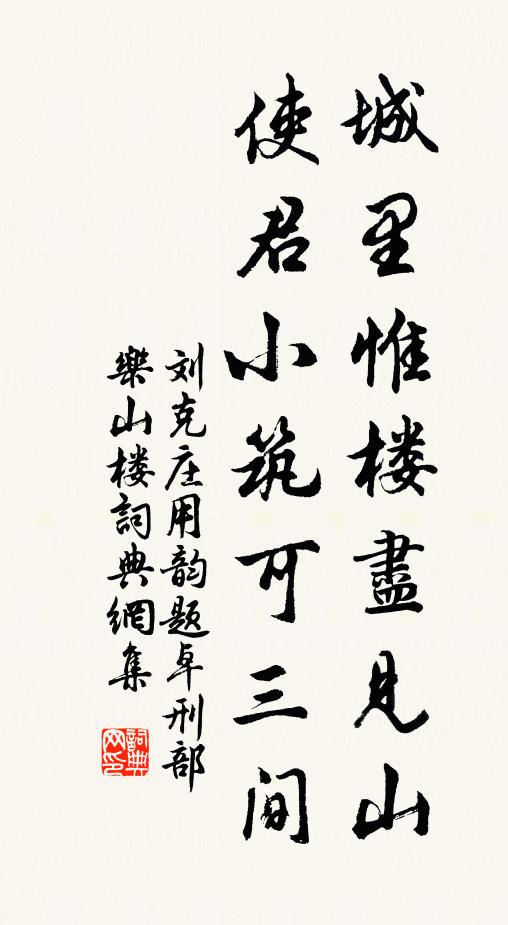 城里惟楼盡见山
使君小筑可三间
刘克庄用韵题卓刑部
樂山楼詞典網集
詞典网印